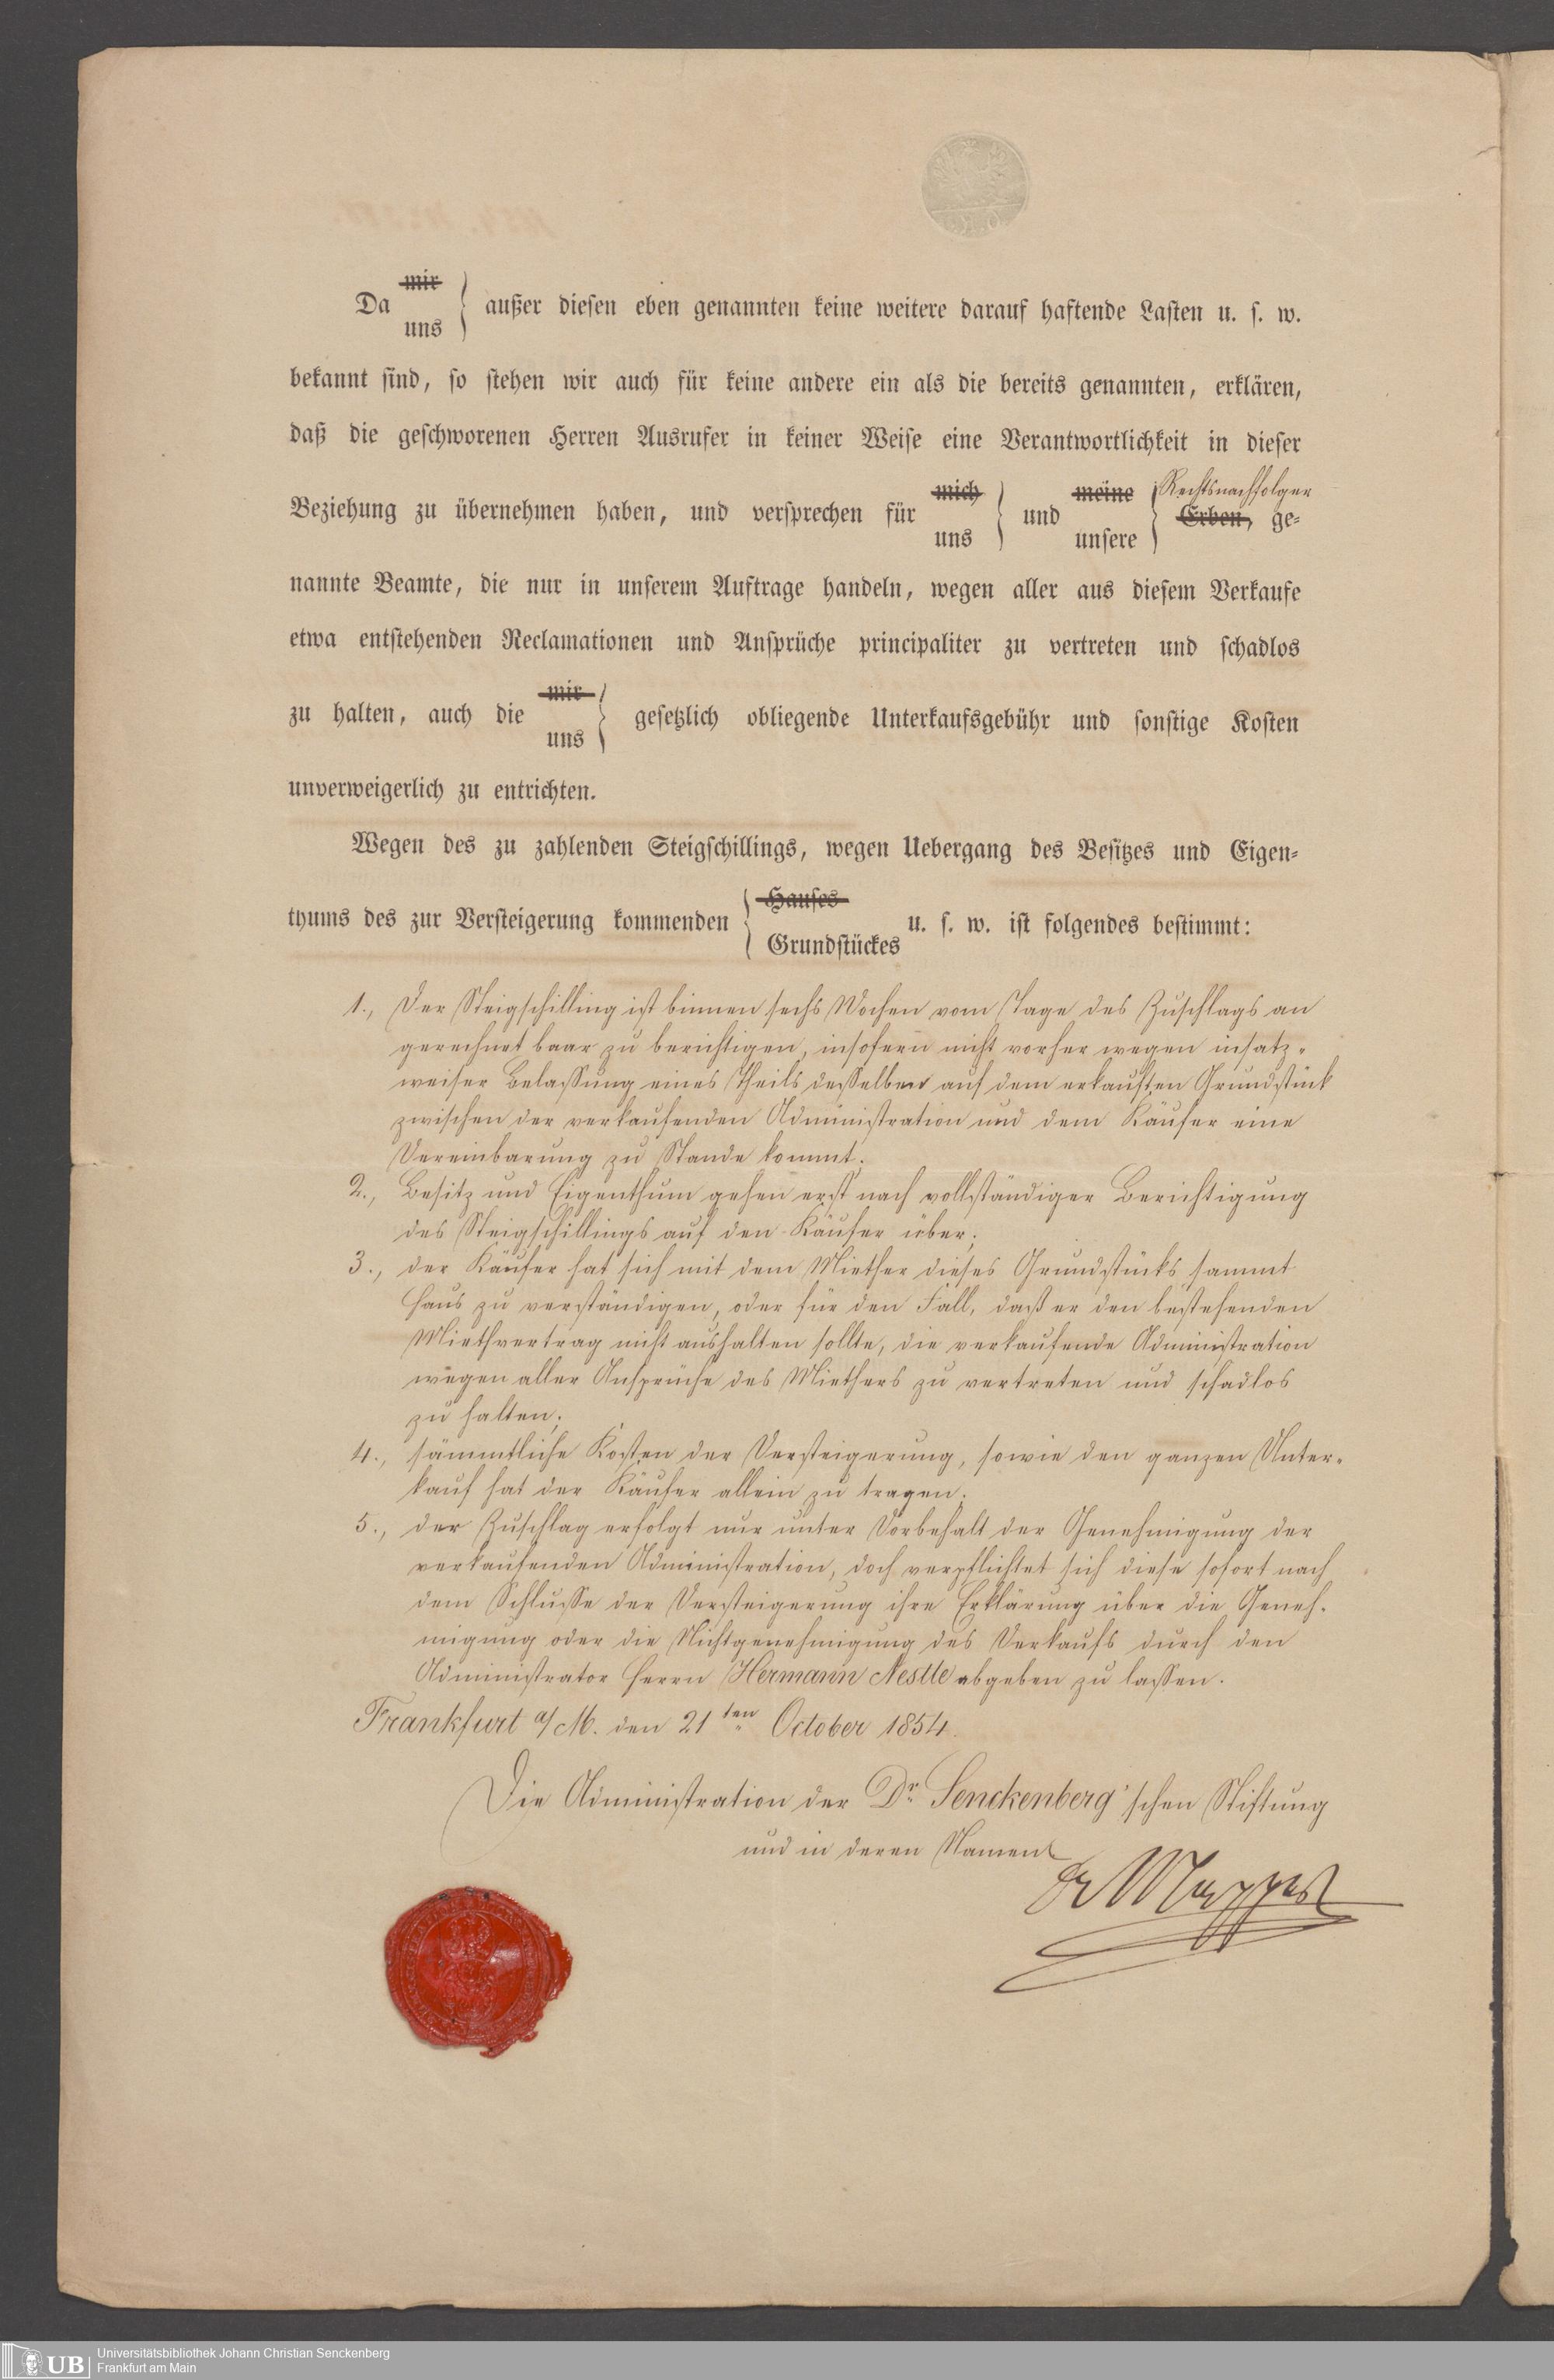 Da mir uns } außer diesen eben genannten keine weitere darauf haftende Lasten u. s. w.
bekannt sind, so stehen wir auch für keine andere ein als die bereits genannten, erklären,
daß die geschworenen Herren Ausrufer in keiner Weise eine Verantwortlichkeit in dieser
Beziehung zu übernehmen haben, und versprechen für mich uns } und meine unsere } Rechtsnachfolger Erben, ge-
nannte Beamte, die nur in unserem Auftrage handeln, wegen aller aus diesem Verkaufe
etwa entstehenden Reclamationen und Ansprüche principaliter zu vertreten und schadlos
zu halten, auch die mir uns } gesetzlich obliegende Unterkaufsgebühr und sonstige Kosten
unverweigerlich zu entrichten.
Wegen des zu zahlenden Steigschillings, wegen Uebergang des Besitzes und Eigen-
thums des zur Versteigerung kommenden { Hauses Grundstückes u. s. w. ist folgendes bestimmt:
1., Der Steigschilling ist binnen sechs Wochen vom Tage des Zuschlags an
gerechnet baar zu berichtigen, insofern nicht vorher wegen insatz-
weiser Belassung eines Theils desselben auf dem erkauften Grundstück
zwischen der verkaufenden Administration und dem Käufer eine
Vereinbarung zu Stande kommt.
2., Besitz und Eigenthum gehen erst nach vollständiger Berichtigung
des Steigschillings auf den Käufer über;
3., der Käufer hat sich mit dem Miether dieses Grundstücks sammt
Haus zu verständigen, oder für den Fall, daß er den bestehenden
Miethvertrag nicht aushalten sollte, die verkaufende Administration
wegen aller Ansprüche des Miethers zu vertreten und schadlos
zu halten;
4., sämmtliche Kosten der Versteigerung, sowie den ganzen Unter-
kauf hat der Käufer allein zu tragen.
5., der Zuschlag erfolgt nur unter Vorbehalt der Genehmigung der
verkaufenden Administration, doch verpflichtet sich diese sofort nach
dem Schlusse der Versteigerung ihre Erklärung über die Geneh-
migung oder die Nichtgenehmigung des Verkaufs durch den
Administrator Herrn Hermann Nestle abgeben zu lassen.
Frankfurt a/M. den 21ten October 1854.
Die Administration der Dr. Senckenberg'schen Stiftung
und in deren Namen
Dr Mappes
UB
Universitätsbibliothek Johann Christian Senckenberg
Frankfurt am Main